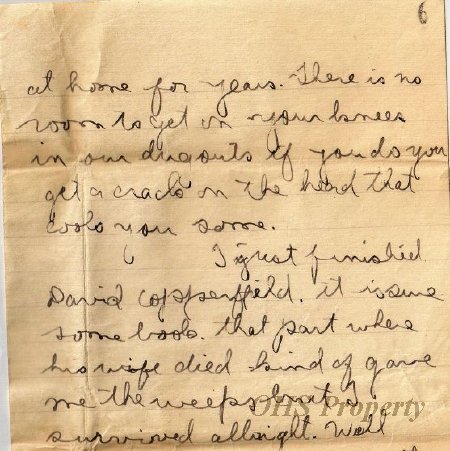 6
at home for years. There is no
room to get on your knees
in our dugouts if you do you
get a crack on the head that
cools you some.
I just finished
David Copperfield. it is sure
some book. that part where
his wife died kind of gave
me the weeps but I
survived allright. Well
OHS Property